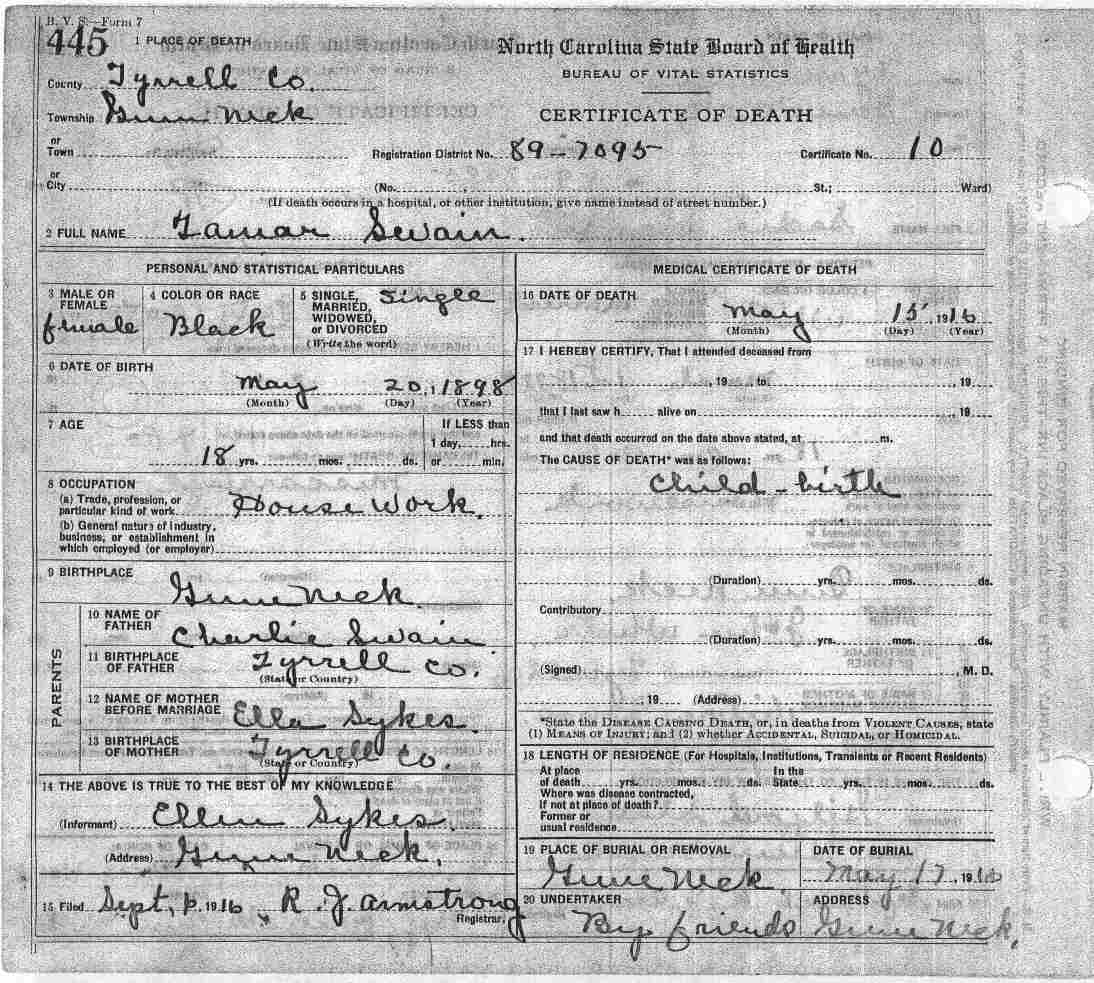 B. V. S.—Form 7
445
1 PLACE OF DEATH
North Carolina State Board of Health
BUREAU OF VITAL STATISTICS
CERTIFICATE OF DEATH
County Tyrrell Co.
Township Gum Neck
or
Town
Registration District No. 89-7095
Certificate No. 10
or
City (No. , St.; Ward)
(If death occurs in a hospital, or other institution, give name instead of street number.)
2 FULL NAME Tamar Swain.
PERSONAL AND STATISTICAL PARTICULARS
3 MALE OR FEMALE female
4 COLOR OR RACE Black
5 SINGLE, MARRIED, WIDOWED, or DIVORCED (Write the word) Single
6 DATE OF BIRTH
May 20, 1898
(Month) (Day) (Year)
7 AGE
18 yrs. mos. ds.
If LESS than
1 day, hrs.
or min.
8 OCCUPATION
(a) Trade, profession, or
particular kind of work House Work.
(b) General nature of industry,
business, or establishment in
which employed (or employer)
9 BIRTHPLACE
Gum Neck.
PARENTS
10 NAME OF
FATHER Charlie Swain
11 BIRTHPLACE
OF FATHER Tyrrell Co.
(State or Country)
12 NAME OF MOTHER
BEFORE MARRIAGE Ella Sykes.
13 BIRTHPLACE
OF MOTHER Tyrrell Co.
(State or Country)
14 THE ABOVE IS TRUE TO THE BEST OF MY KNOWLEDGE
(Informant) Ellen Sykes.
(Address) Gum Neck.
15 Filed Sept, 1916 R. J. Armstrong
Registrar.
MEDICAL CERTIFICATE OF DEATH
16 DATE OF DEATH
May 15, 1916
(Month) (Day) (Year)
17 I HEREBY CERTIFY, That I attended deceased from
, 19 to , 19
that I last saw h alive on , 19
and that death occurred on the date above stated, at m.
The CAUSE OF DEATH* was as follows:
Child-birth
(Duration) yrs. mos. ds.
Contributory
(Duration) yrs. mos. ds.
(Signed) M. D.
, 19 (Address)
*State the DISEASE CAUSING DEATH, or, in deaths from VIOLENT CAUSES, state
(1) MEANS OF INJURY; and (2) whether ACCIDENTAL, SUICIDAL, or HOMICIDAL.
18 LENGTH OF RESIDENCE (For Hospitals, Institutions, Transients or Recent Residents)
At place In the
of death yrs. mos. ds. State yrs. mos. ds.
Where was disease contracted,
If not at place of death?
Former or
usual residence
19 PLACE OF BURIAL OR REMOVAL
Gum Neck.
DATE OF BURIAL
May 17, 1916
20 UNDERTAKER
By friends
ADDRESS
Gum Neck.